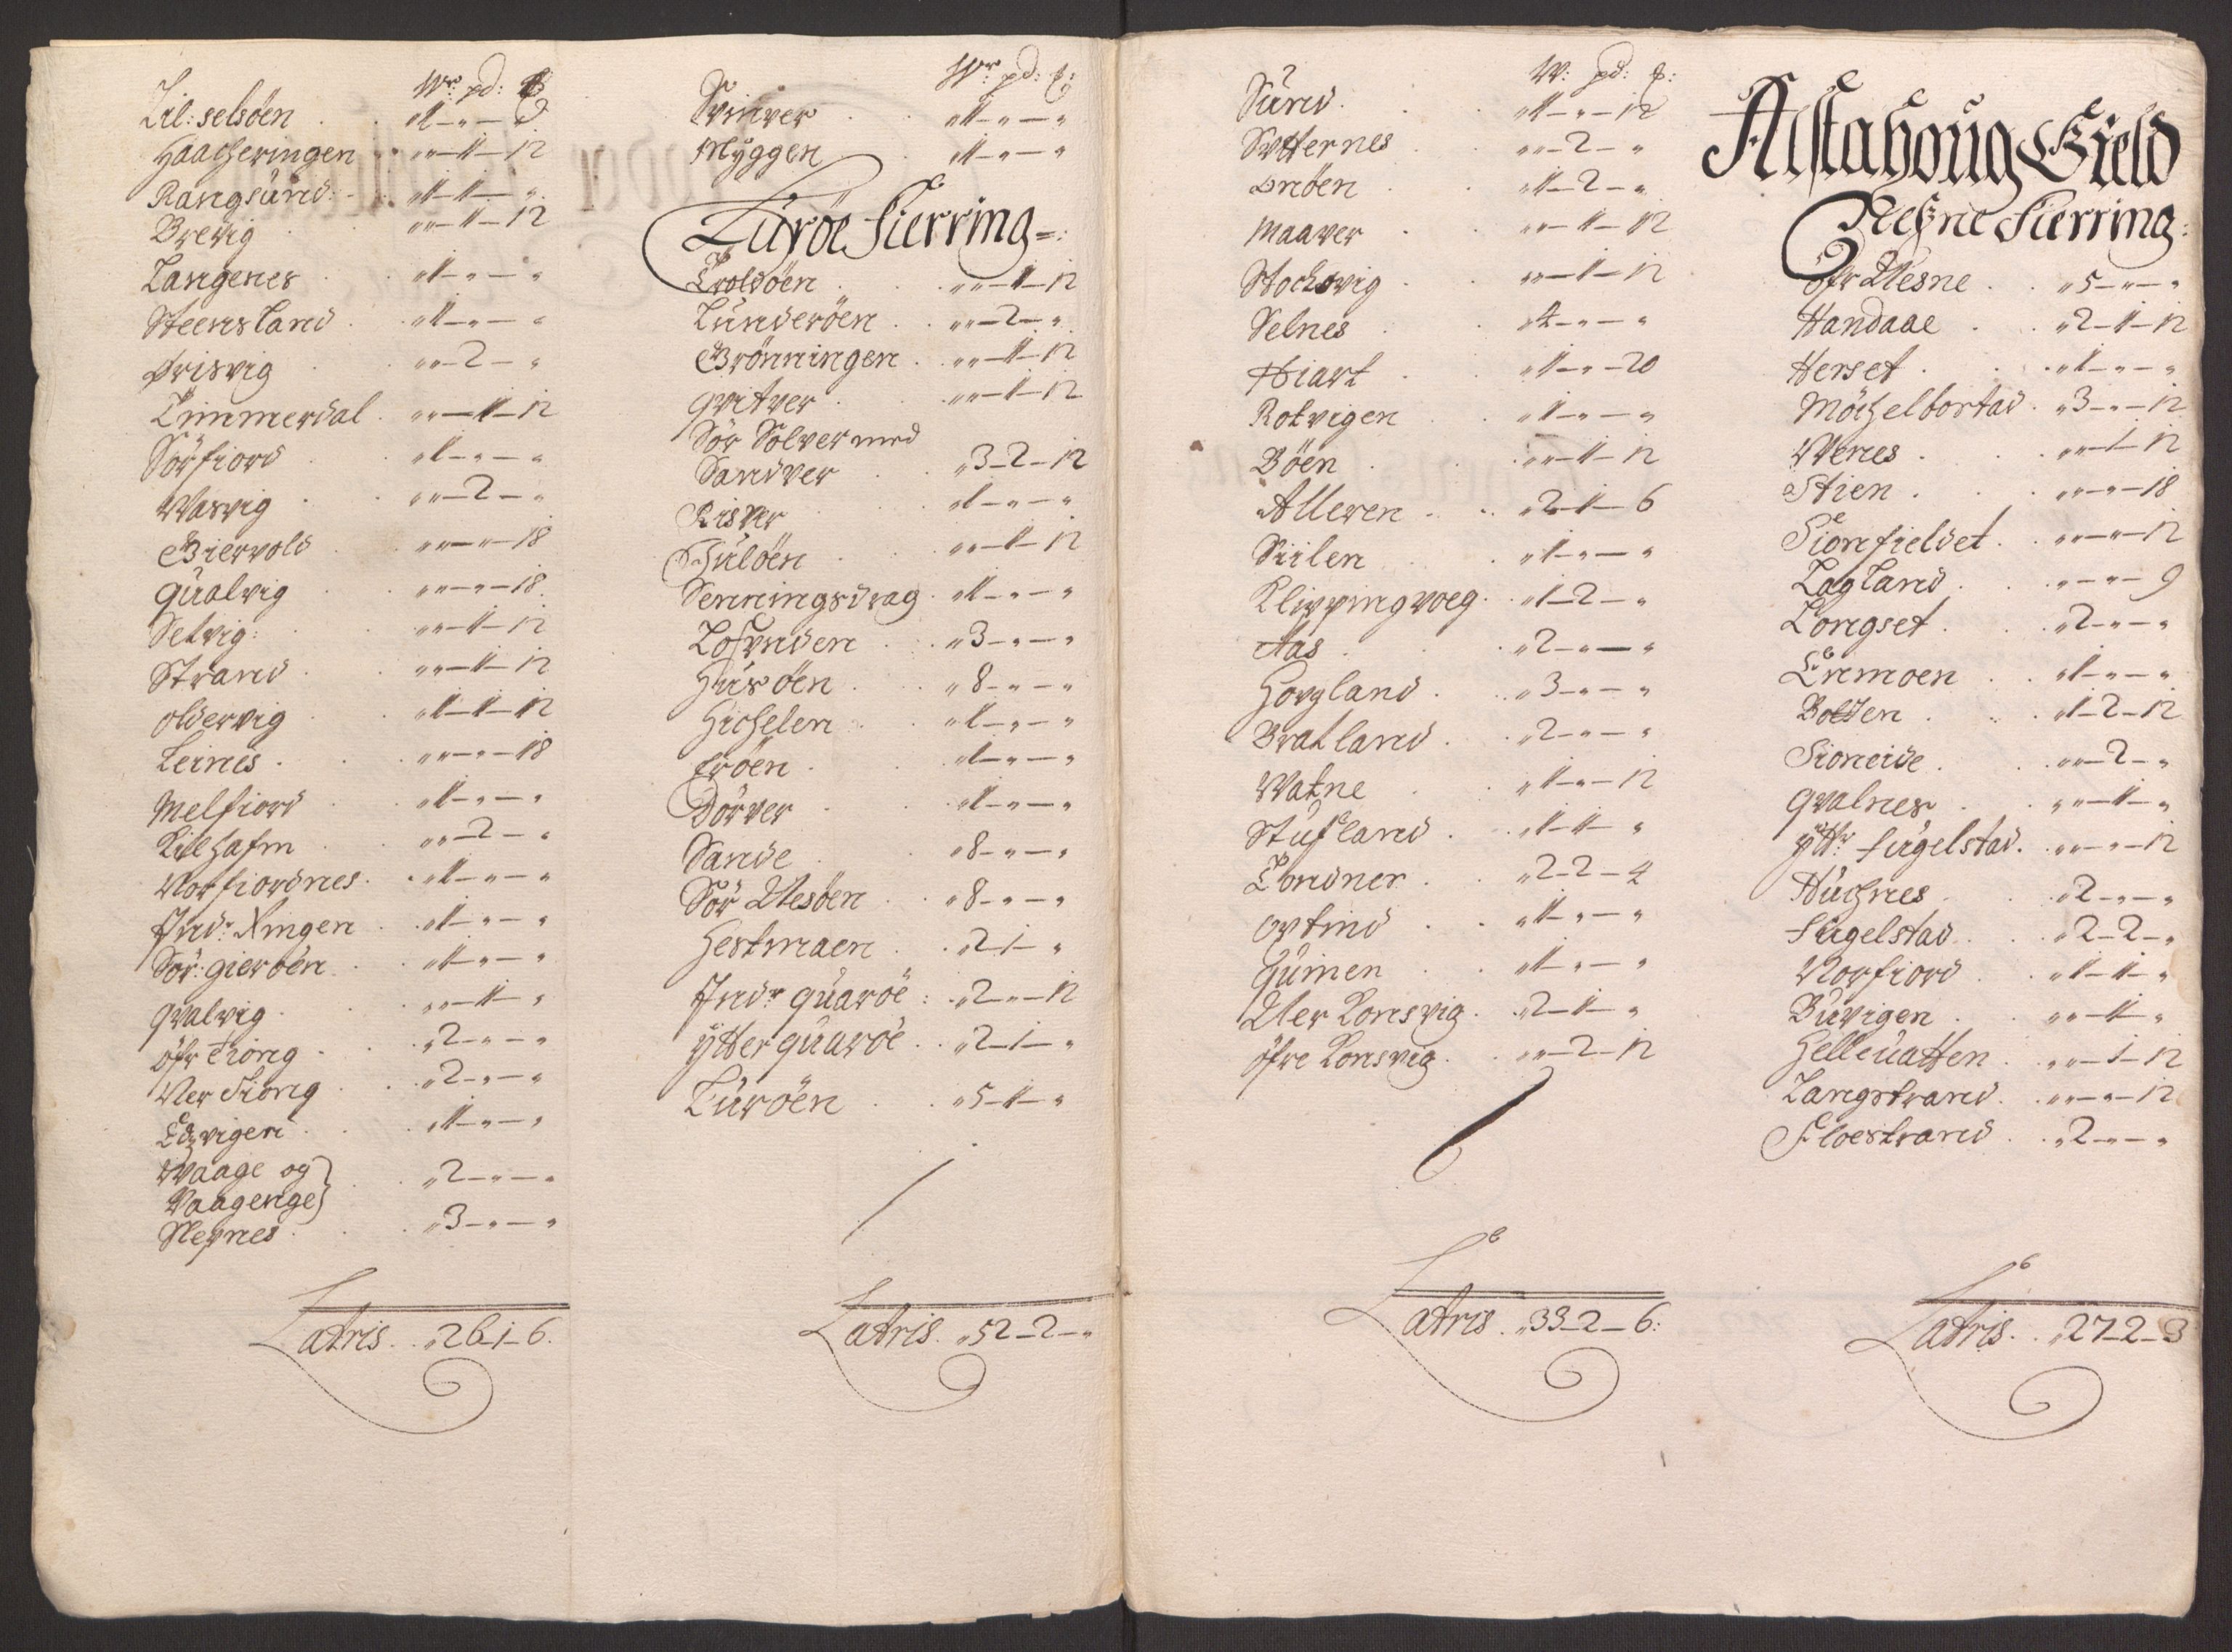 Wr pd:
Lil: selsöen . . "1-"-"
Haacheringen ""-1-12
Rangsund: "1-1-"
Brevig ""-1-12
Langenes "1-"-"
Steensland "1-"-"
Ørisvig ""-2-"
Timmerdal ""-1-12
Sörfiord "1-"-"
Wasvig ""-2-"
Biervold ""-"-18
Qualvig ""-"-18
Selvig: ""-1-12
Strand ""-1-12
Oldervig "1-1-12
Leines ""-"-18
Melfiord "1-"-"
Kilhafn ""-2-"
Norfiordnes "1-"-"
Indr: Xingen "1-"-"
Sör: gieröen "1-"-"
Qvalvig ""-1-"
öfr Tiong "2-"-"
Ner Tiong "2-"-"
Edzvigen "1-"-"
Waage og
Vaagenge} "2-"-"
Nesnes "3-"-"
Latris . . "26-1-6.
Wr: pd: :
Svinver "1-"-"
Myggen "1-"-"
Luröe Fierring=:
Troldöen ""-1-12
Lunderöen ""-2-"
Brönningen ""-1-12
Qvitver ""-1-12
Sör Solver med
Sandver "3-2-12
Risver "1-"-"
Suløen ""-1-12
Senningsdrag "1-"-"
Lofvnden "3-"-"
Husöen "8-"-"
Hichelen "1-"-"
Eröen "1-"-"
Dörver "1-"-"
Sande "8-"-"
Sör Nesöen "8-"-"
Hestmaen "2-1-"
Indr quaröe : "2-"-12
ÿtter quaröe "2-1-"
Luröen "5-1-"
Latris . "52-2-"
W: pd: :
Sund. "1-"-12
Svtternes ""-2-"
Onöen "1-2-"
Maaver ""-1-12
Stochvig ""-1-12
Selnes "4-"-"
Hiart "1-"-20
Rotvigen "1-"-"
Böen ""-1-12
Alleren "2-1-6
Siilen "1-"-"
Klippingvoeg "1-2-"
Aas "2-"-"
Horgland "3-"-"
Bratland "2-"-"
Watne "1-"-12
Stufland "1-1-"
Tondner "2-2-4
Optind "1-"-"
Quinen "1-"-"
Ner Konsvig "2-1-"
öfre Konsvig ""-2-12
Latris . "33-2-6:
Alstahoug Gield
Nesne Fierring:
öfr Nesne "5-"-"
Handaae "2-1-12
Herset "1-"-"
Möchelbortad "3-"-12
Wenes ""-1-12
Stien ""-"-18
Sionfieldet ""-"-12
Lagland "-"-9
Longset "2-"-"
Enmoen "1-"-"
Bolden "1-2-12
Sioneide ""-2-"
Qvalnes ""-1-"
ÿttr fugelstad. ""-"-12
Huchnes "2-"-"
Fugelstad "2-2-"
Norfiord "1-1-"
Buvigen ""-1-"
Helleuatten ""-1-12
Langstrand ""-"-12
Floestrand "2-"-"
Latris. . "27-2-3